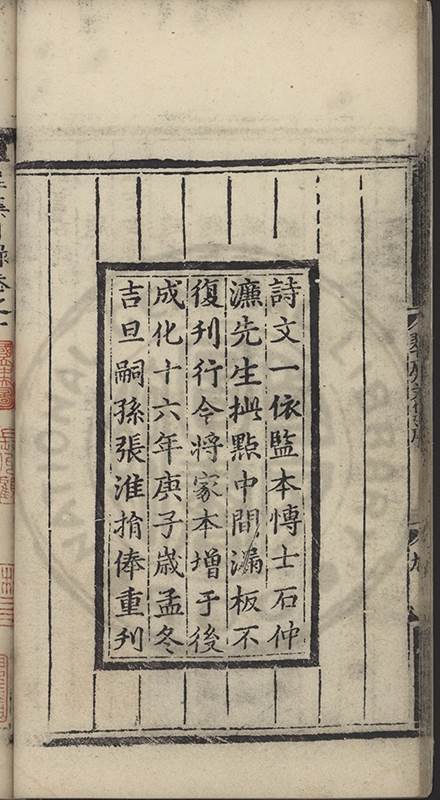 詩文一依監本愽士石仲
濂先生批點中間漏板不
復刊行今將家本增于後
成化十六年庚子歲孟冬
吉旦嗣孫張淮捐俸重刊